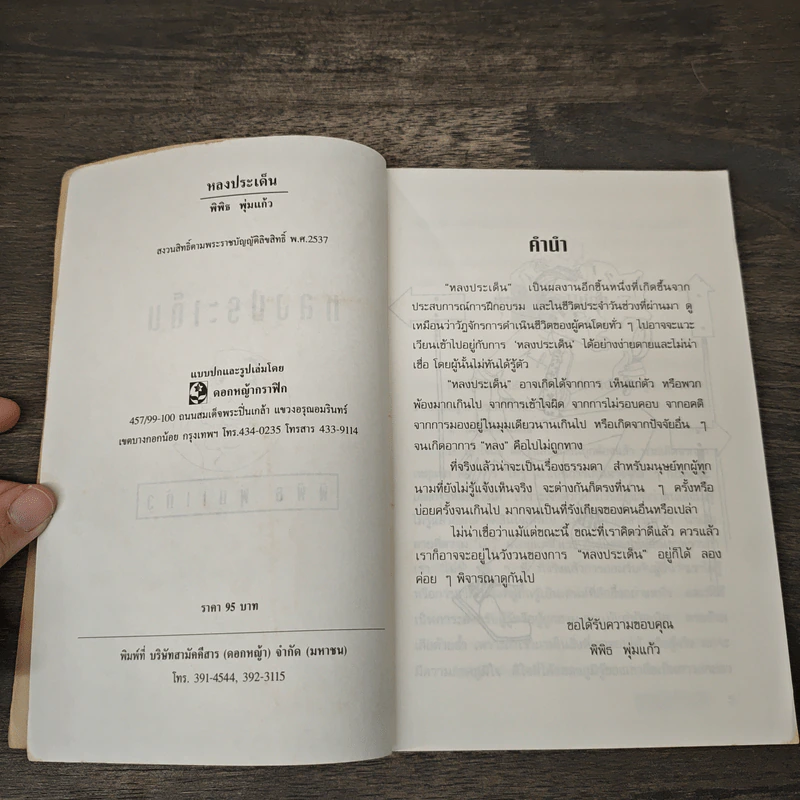 หลงประเด็น
พิพิธ พุ่มแก้ว
สงวนสิทธิ์ตามพระราชบัญญัติลิขสิทธิ์ พ.ศ.2537
แบบปกและรูปเล่มโดย
ดอกหญ้ากราฟิก
457/99-100 ถนนสมเด็จพระปิ่นเกล้า แขวงอรุณอมรินทร์
เขตบางกอกน้อย กรุงเทพฯ โทร.434-0235 โทรสาร 433-9114
ราคา 95 บาท
พิมพ์ที่ บริษัทสามัคคีสาร (ดอกหญ้า) จำกัด (มหาชน)
โทร. 391-4544, 392-3115
คำนำ
"หลงประเด็น" เป็นผลงานอีกชิ้นหนึ่งที่เกิดขึ้นจาก
ประสบการณ์การฝึกอบรม และในชีวิตประจำวันช่วงที่ผ่านมา ดู
เหมือนว่าวัฏจักรการดำเนินชีวิตของผู้คนโดยทั่ว ๆ ไปอาจจะแวะ
เวียนเข้าไปอยู่กับการ 'หลงประเด็น' ได้อย่างง่ายดายและไม่น่า
เชื่อ โดยผู้นั้นไม่ทันได้รู้ตัว
"หลงประเด็น" อาจเกิดได้จากการ เห็นแก่ตัว หรือพวก
พ้องมากเกินไป จากการเข้าใจผิด จากการไม่รอบคอบ จากอคติ
จากการมองอยู่ในมุมเดียวนานเกินไป หรือเกิดจากปัจจัยอื่น ๆ
จนเกิดอาการ "หลง" คือไปไม่ถูกทาง
ที่จริงแล้วน่าจะเป็นเรื่องธรรมดา สำหรับมนุษย์ทุกผู้ทุก
นามที่ยังไม่รู้แจ้งเห็นจริง จะต่างกันก็ตรงที่นาน ๆ ครั้งหรือ
บ่อยครั้งจนเกินไป มากจนเป็นที่รังเกียจของคนอื่นหรือเปล่า
ไม่น่าเชื่อว่าแม้แต่ขณะนี้ ขณะที่เราคิดว่าดีแล้ว ควรแล้ว
เราก็อาจจะอยู่ในวังวนของการ "หลงประเด็น" อยู่ก็ได้ ลอง
ค่อย ๆ พิจารณาดูกันไป
ขอได้รับความขอบคุณ
พิพิธ พุ่มแก้ว